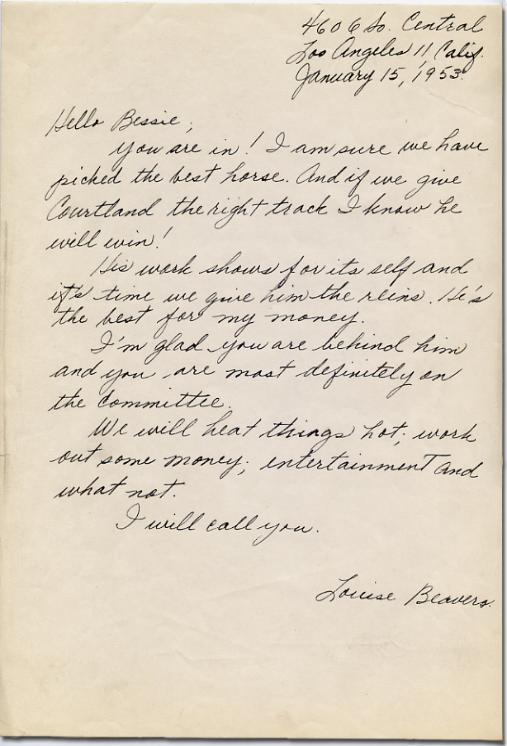 4606 So. Central
Los Angeles 11, Calif.
January 15, 1953.
Hello Bessie,
You are in! I am sure we have
picked the best horse. And if we give
Courtland the right track I know he
will win!
His work shows for its self and
it's time we give him the reins. He's
the best for my money.
I'm glad you are behind him
and you are most definitely on
the committee.
We will heat things hot; work
out some money; entertainment and
what not.
I will call you.
Louise Beavers.